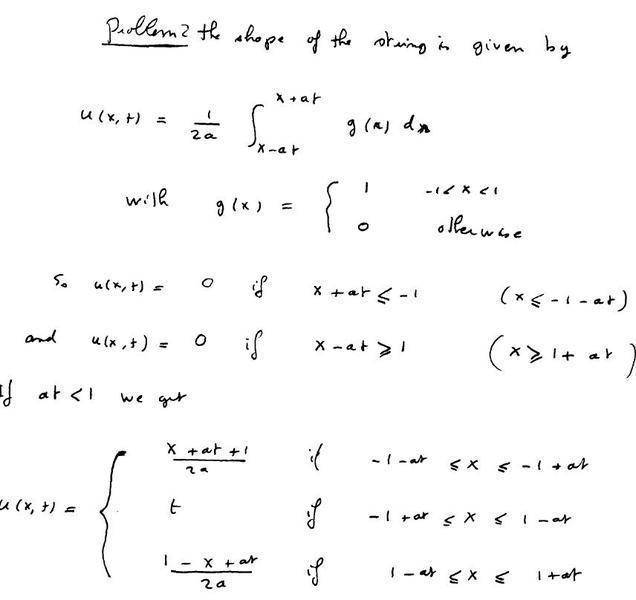 Problem 2 the shape of the string is given by
u(x,t) = 1/2a ∫_{x-at}^{x+at} g(s) ds
with g(x) = { 1 -1<x<1
0 otherwise
So u(x,t) = 0 if x+at ≤ -1 (x ≤ -1-at)
and u(x,t) = 0 if x-at ≥ 1 (x ≥ 1+at)
If at<1 we get
u(x,t) = { (x+at+1)/2a if -1-at ≤ x ≤ -1+at
t if -1+at ≤ x ≤ 1-at
(1-x+at)/2a if 1-at ≤ x ≤ 1+at